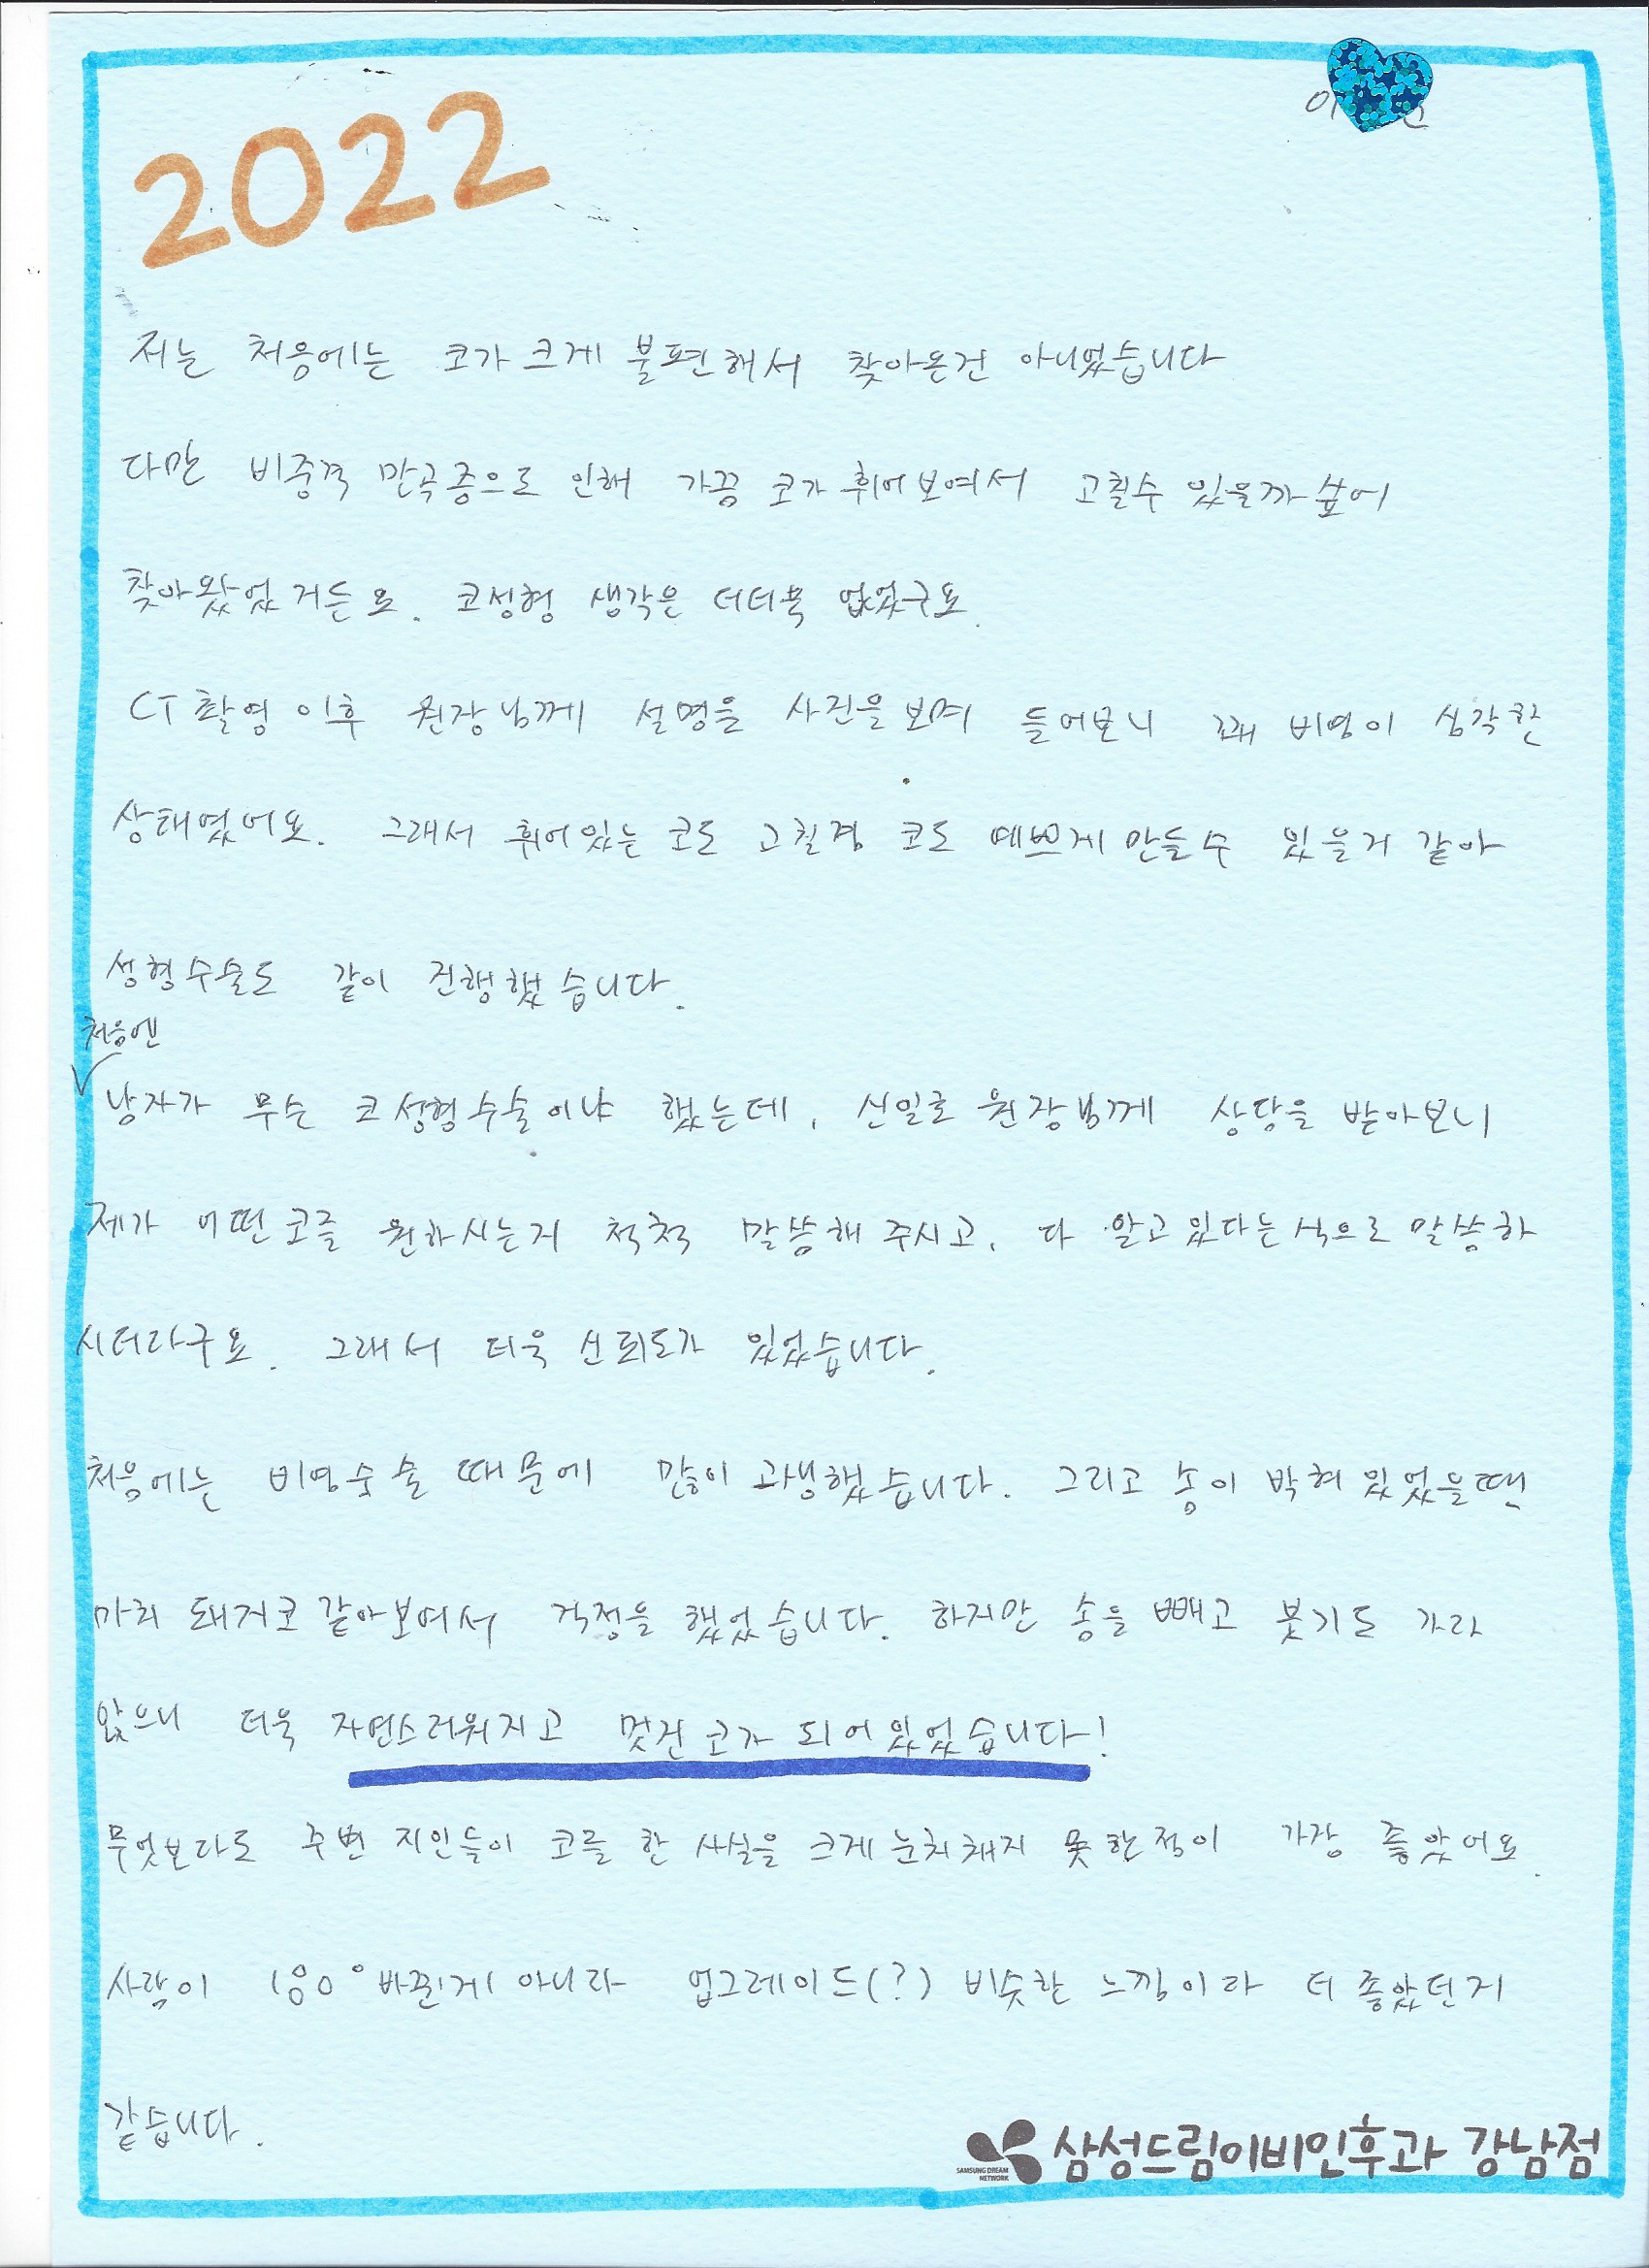 2022
저는 처음에는 코가 크게 불편해서 찾아온건 아니었습니다
다만 비중격 만곡증으로 인해 가끔 코가 휘어보여서 고칠수 있을까 싶어
찾아왔었거든요. 코성형 생각은 더더욱 없었구요.
CT촬영 이후 원장님께 설명을 사진을 보며 들어보니 꽤 비염이 심각한
상태였어요. 그래서 휘어있는 코도 고칠겸 코도 예쁘게 만들수 있을거 같아
성형수술도 같이 진행했습니다.
처음엔
남자가 무슨 코성형수술이냐 했는데, 신일호 원장님께 상담을 받아보니
제가 어떤코를 원하시는지 척척 말씀해 주시고, 다 알고있다는식으로 말씀하
시더라구요. 그래서 더욱 신뢰도가 있었습니다.
처음에는 비염수술 때문에 많이 고생했습니다. 그리고 솜이 박혀 있었을땐
마치 돼지코 같아보여서 걱정을 했었습니다. 하지만 솜을 빼고 붓기도 가라
앉으니 더욱 자연스러워지고 멋진 코가 되어있었습니다!
무엇보다도 주변 지인들이 코를 한 사실을 크게 눈치채지 못한점이 가장 좋았어요.
사람이 180°바뀐게 아니라 업그레이드(?) 비슷한 느낌이라 더 좋았던거
같습니다.
삼성드림이비인후과 강남점
SAMSUNG DREAM
NETWORK